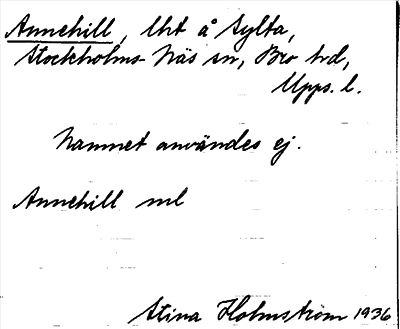 Annehill, lht å Sylta,
Stockholms-Näs sn, Bro hd,
Upps. l.
Namnet användes ej.
Annehill ml
Stina Holmström 1936